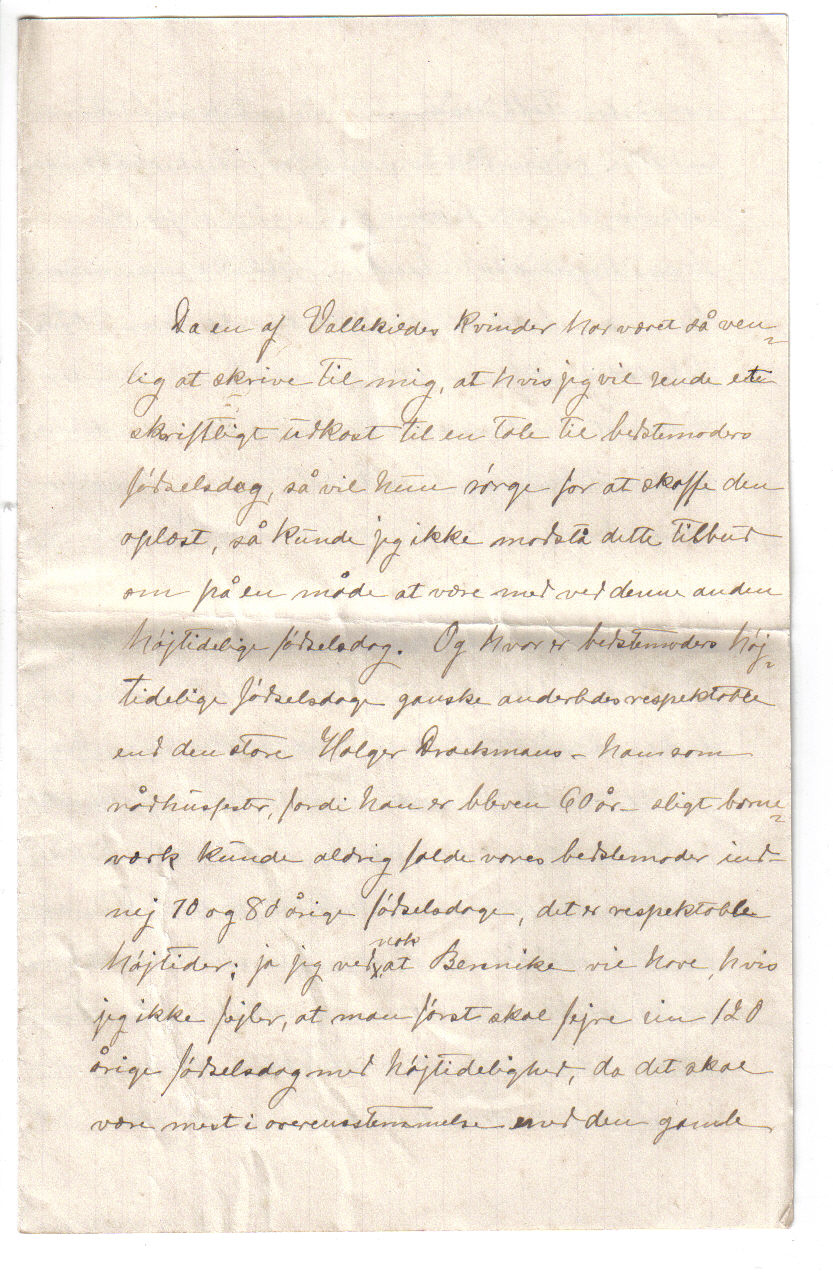 Da en af Vallekildes kvinder har været så ven=
lig at skrive til mig, at hvis jeg vil sende ete
skriftligt udkast til en tale til bedstemoders
fødselsdag, så vil hun sørge for at skaffe den
oplæst, så kunde jeg ikke modstå dette tilbud
om på en måde at være med ved denne anden
højtidelige fødselsdag. Og hvor er bedstemoders høj=
tidelige fødselsdage ganske anderledes respektable
end den store Holger Drackmans – ham som
rådhusfester, fordi han er bleven 60 år – sligt børne=
værk kunde aldrig falde vores bedstemoder ind –
nej 70 og 80 årige fødselsdage, det er respektable
højtider; ja jeg ved nok at Bennike vil have, hvis
jeg ikke fejler, at man først skal fejre sin 120
årige fødselsdag med højtidelighed, da det skal
være mest i overensstemmelse med den gamle